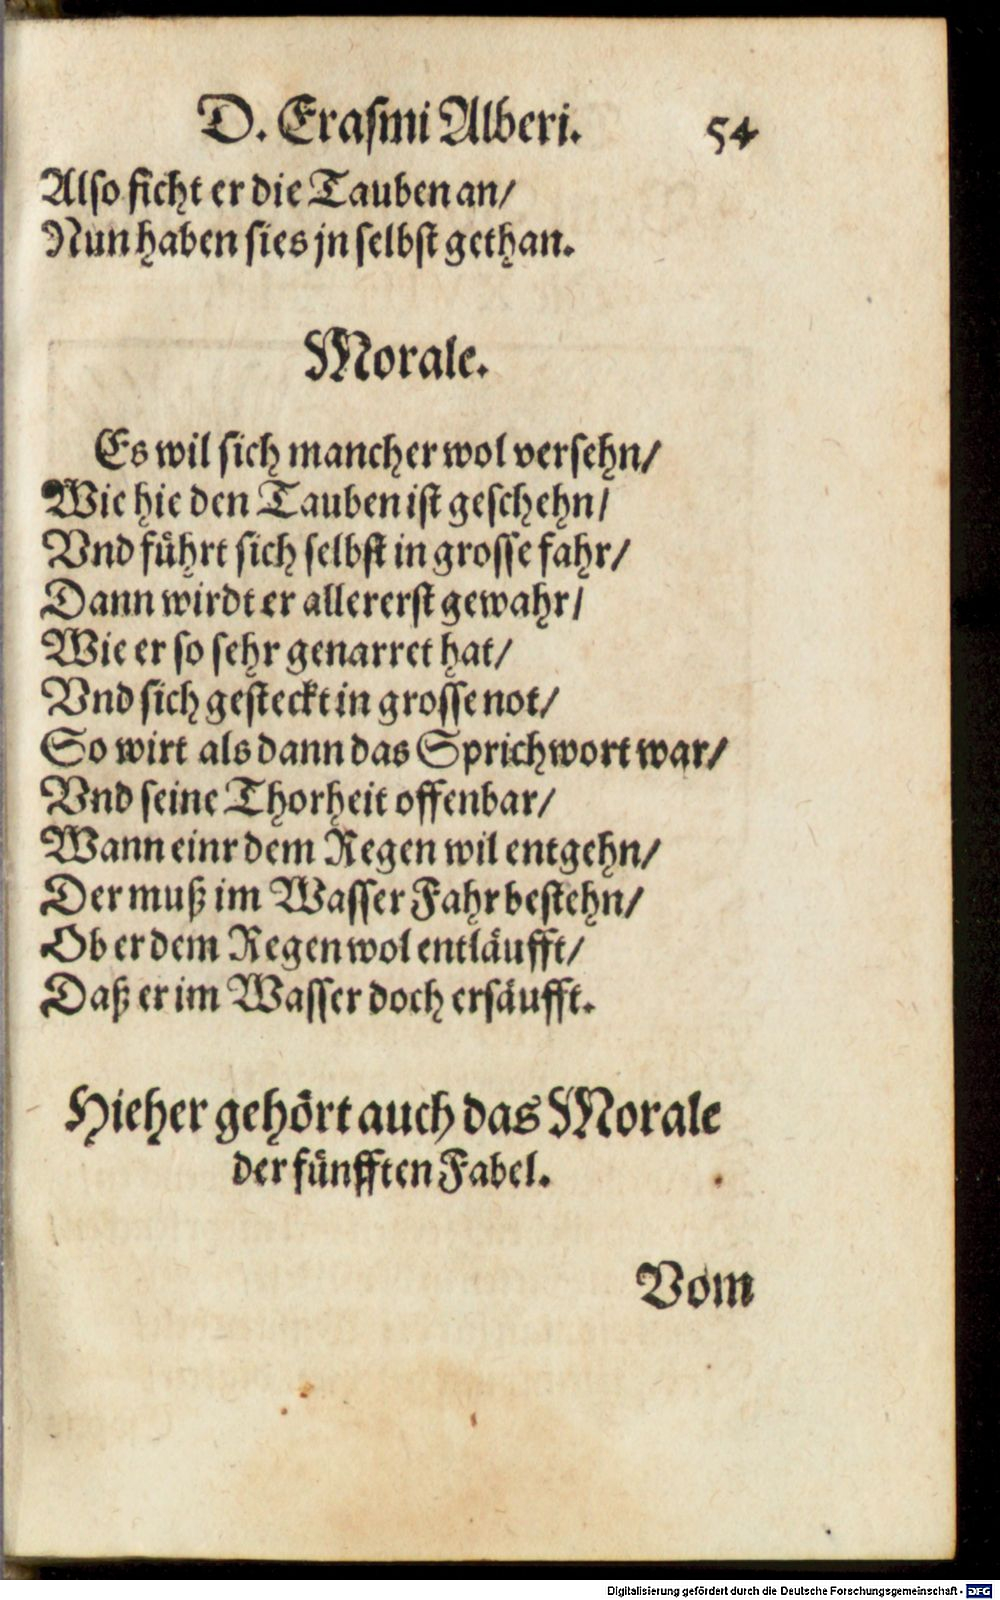 D. Erasmi Alberi. 54
Also ficht er die Tauben an/
Nun haben sies jn selbst gethan.
Morale.
Es wil sich mancher wol versehn/
Wie hie den Tauben ist geschehn/
Vnd führt sich selbst in grosse fahr/
Dann wirdt er allererst gewahr/
Wie er so sehr genarret hat/
Vnd sich gesteckt in grosse not/
So wirt als dann das Sprichwort war/
Vnd seine Thorheit offenbar/
Wann einr dem Regen wil entgehn/
Der muß im Wasser Fahr bestehn/
Ob er dem Regen wol entläufft/
Daß er im Wasser doch ersäufft.
Hieher gehört auch das Morale
der fünfften Fabel.
Vom
Digitalisierung gefördert durch die Deutsche Forschungsgemeinschaft - DFG